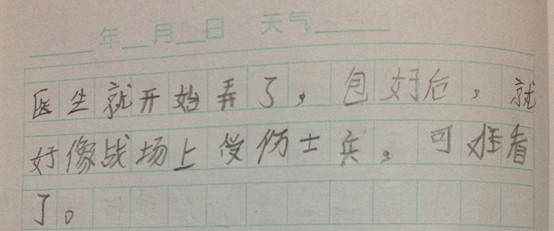 年 月 日 天气
医生就开始弄了，包好后，就
好像战场上受伤士兵，可难看
了。